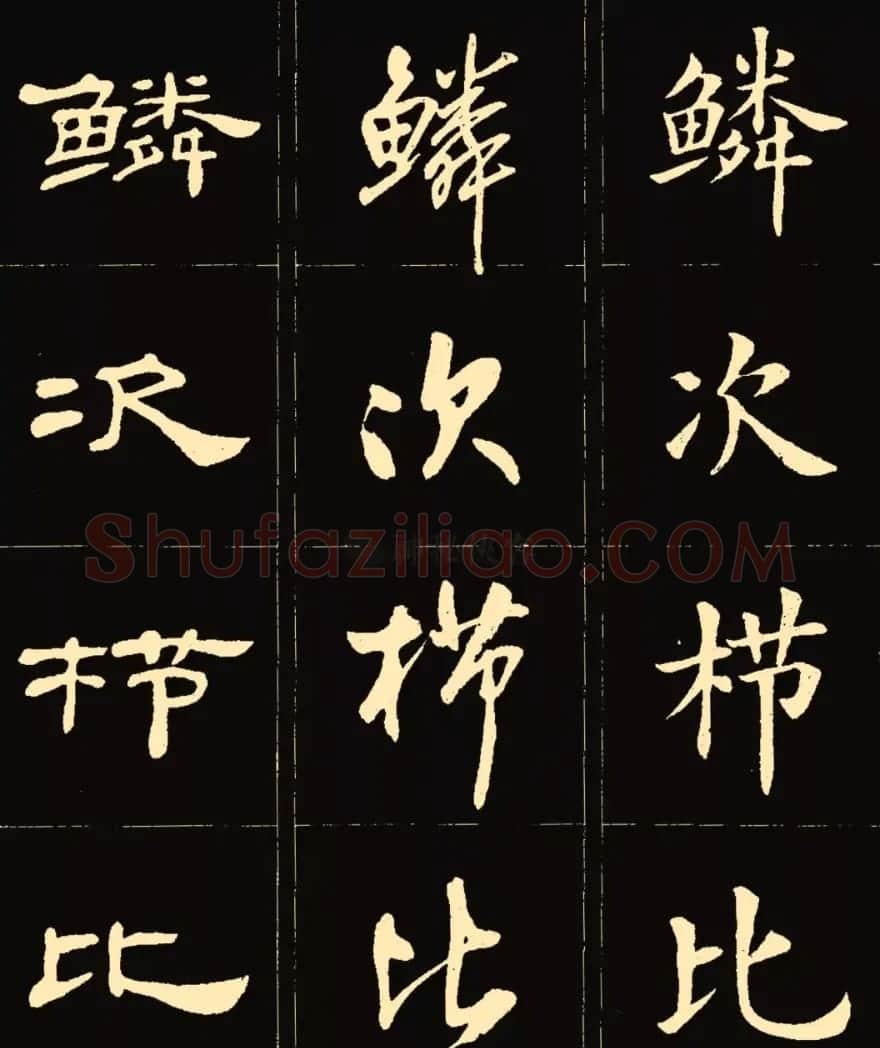 鳞 鳞 鳞
次 次 次
栉 栉 栉
比 比 比
Shufaziliao.COM